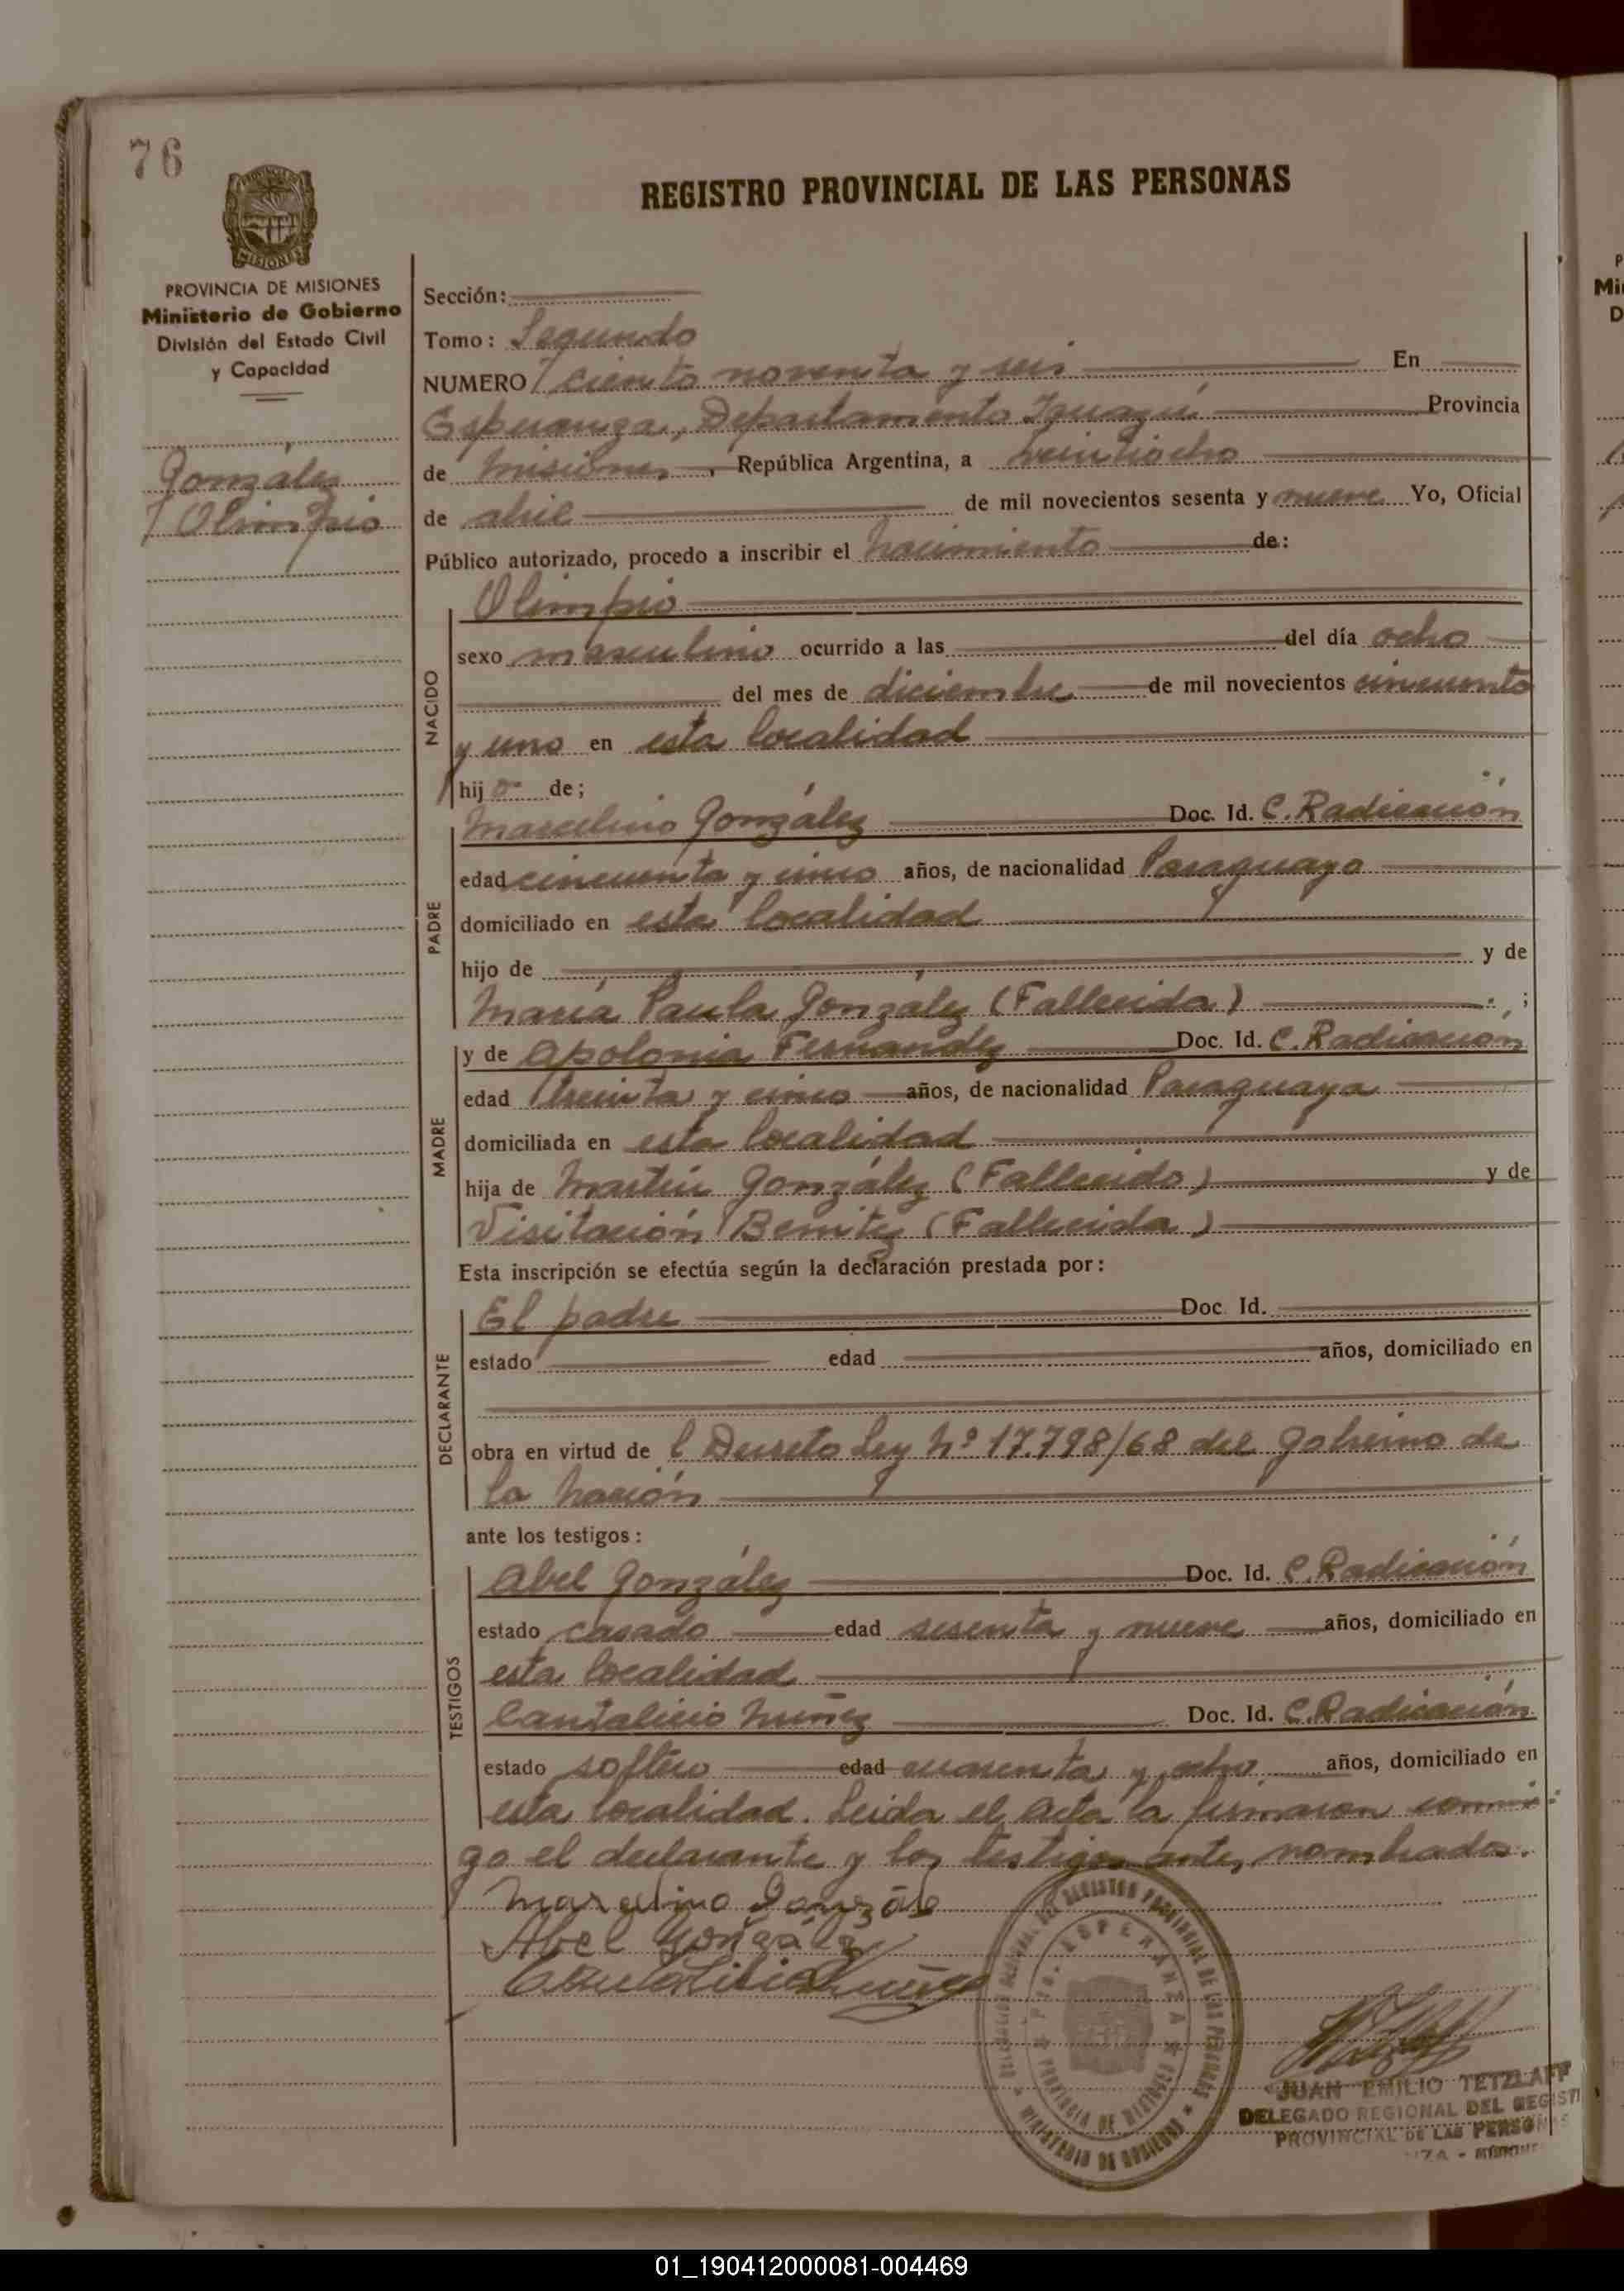 76
REGISTRO PROVINCIAL DE LAS PERSONAS
PROVINCIA DE MISIONES
Ministerio de Gobierno
División del Estado Civil
y Capacidad
González
Olimpio
Sección:
Tomo: Segundo
NUMERO ciento noventa y seis En
Esperanza, Departamento Iguazú Provincia
de Misiones, República Argentina, a veintiocho
de abril de mil novecientos sesenta y nueve Yo, Oficial
Público autorizado, procedo a inscribir el nacimiento de:
NACIDO
Olimpio
sexo masculino ocurrido a las del día ocho
del mes de diciembre de mil novecientos cincuenta
y uno en esta localidad
hij o de;
PADRE
Marcelino González Doc. Id. C. Radicación
edad cincuenta y cinco años, de nacionalidad Paraguayo
domiciliado en esta localidad
hijo de y de
María Paula González (Fallecida) ;
MADRE
y de Apolonia Fernandez Doc. Id. C. Radicación
edad treinta y cinco años, de nacionalidad Paraguaya
domiciliada en esta localidad
hija de Martín González (Fallecido) y de
Visitación Benitez (Fallecida)
Esta inscripción se efectúa según la declaración prestada por:
DECLARANTE
El padre Doc. Id.
estado edad años, domiciliado en
obra en virtud de l Decreto Ley Nº 17.798/68 del Gobierno de
la Nación
ante los testigos:
TESTIGOS
Abel González Doc. Id. C. Radicación
estado casado edad sesenta y nueve años, domiciliado en
esta localidad
Cantalicio Nuñez Doc. Id. C. Radicación
estado soltero edad cuarenta y ocho años, domiciliado en
esta localidad. Leida el acta la firmaron conmi-
go el declarante y los testigos antes nombrados.
Marcelino Gonzále
Abel Gonzalez
Cantalicio Nuñez
ESPERANZA
PROVINCIA DE MISIONES
MINISTERIO DE GOBIERNO
JUAN EMILIO TETZLAFF
DELEGADO REGIONAL DEL REGISTR
PROVINCIAL DE LAS PERSONAS
01_190412000081-004469